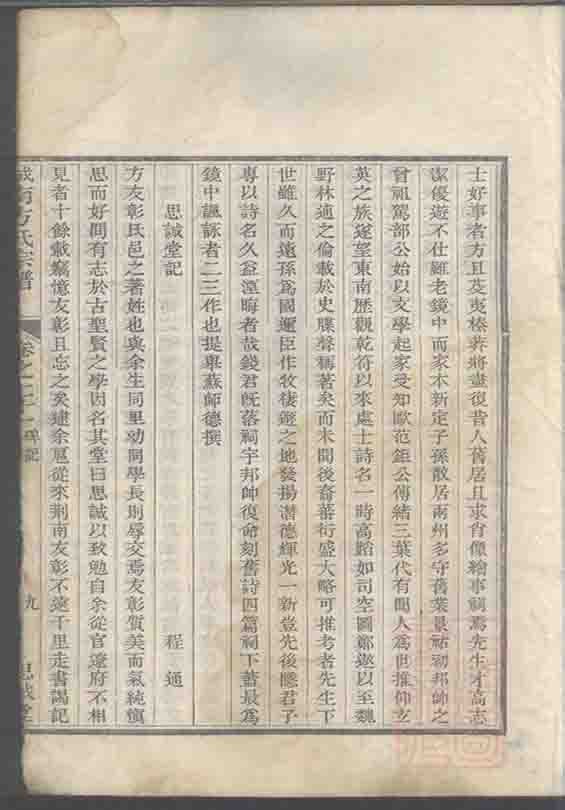 士好事者方且芟夷榛莽將盡復昔人舊居且求肖像繪事祠焉先生才高志
潔優遊不仕雖老鏡中而家本新定子孫散居兩州多守舊業景祐初邦帥之
曾祖駕部公始以文學起家受知歐范鉅公傳緒三葉代有聞人為世推仰玄
英之族遂望東南歷觀乾符以來處士詩名一時高蹈如司空圖鄭遨以至魏
野林逋之倫載於史牒聲稱著矣而未聞後裔蕃衍盛大略可推考者先生下
世雖久而遠孫為國邇臣作牧棲遯之地發揚潛德輝光一新豈先後隱君子
專以詩名久益湮晦者哉錢君既落祠宇邦帥復命刻舊詩四篇祠下蓋最為
鏡中諷詠者二三作也提舉蘇師德撰
思誠堂記 程通
方友彰氏邑之著姓也與余生同里幼同學長則辱交焉友彰質美而氣純慎
思而好問有志於古聖賢之學因名其堂曰思誠以致勉自余從官遼府不相
見者十餘載竊憶友彰且忘之矣逮余扈從來荆南友彰不遠千里走書謁記
方氏宗譜 卷之二十一 碑記 九 思誠堂